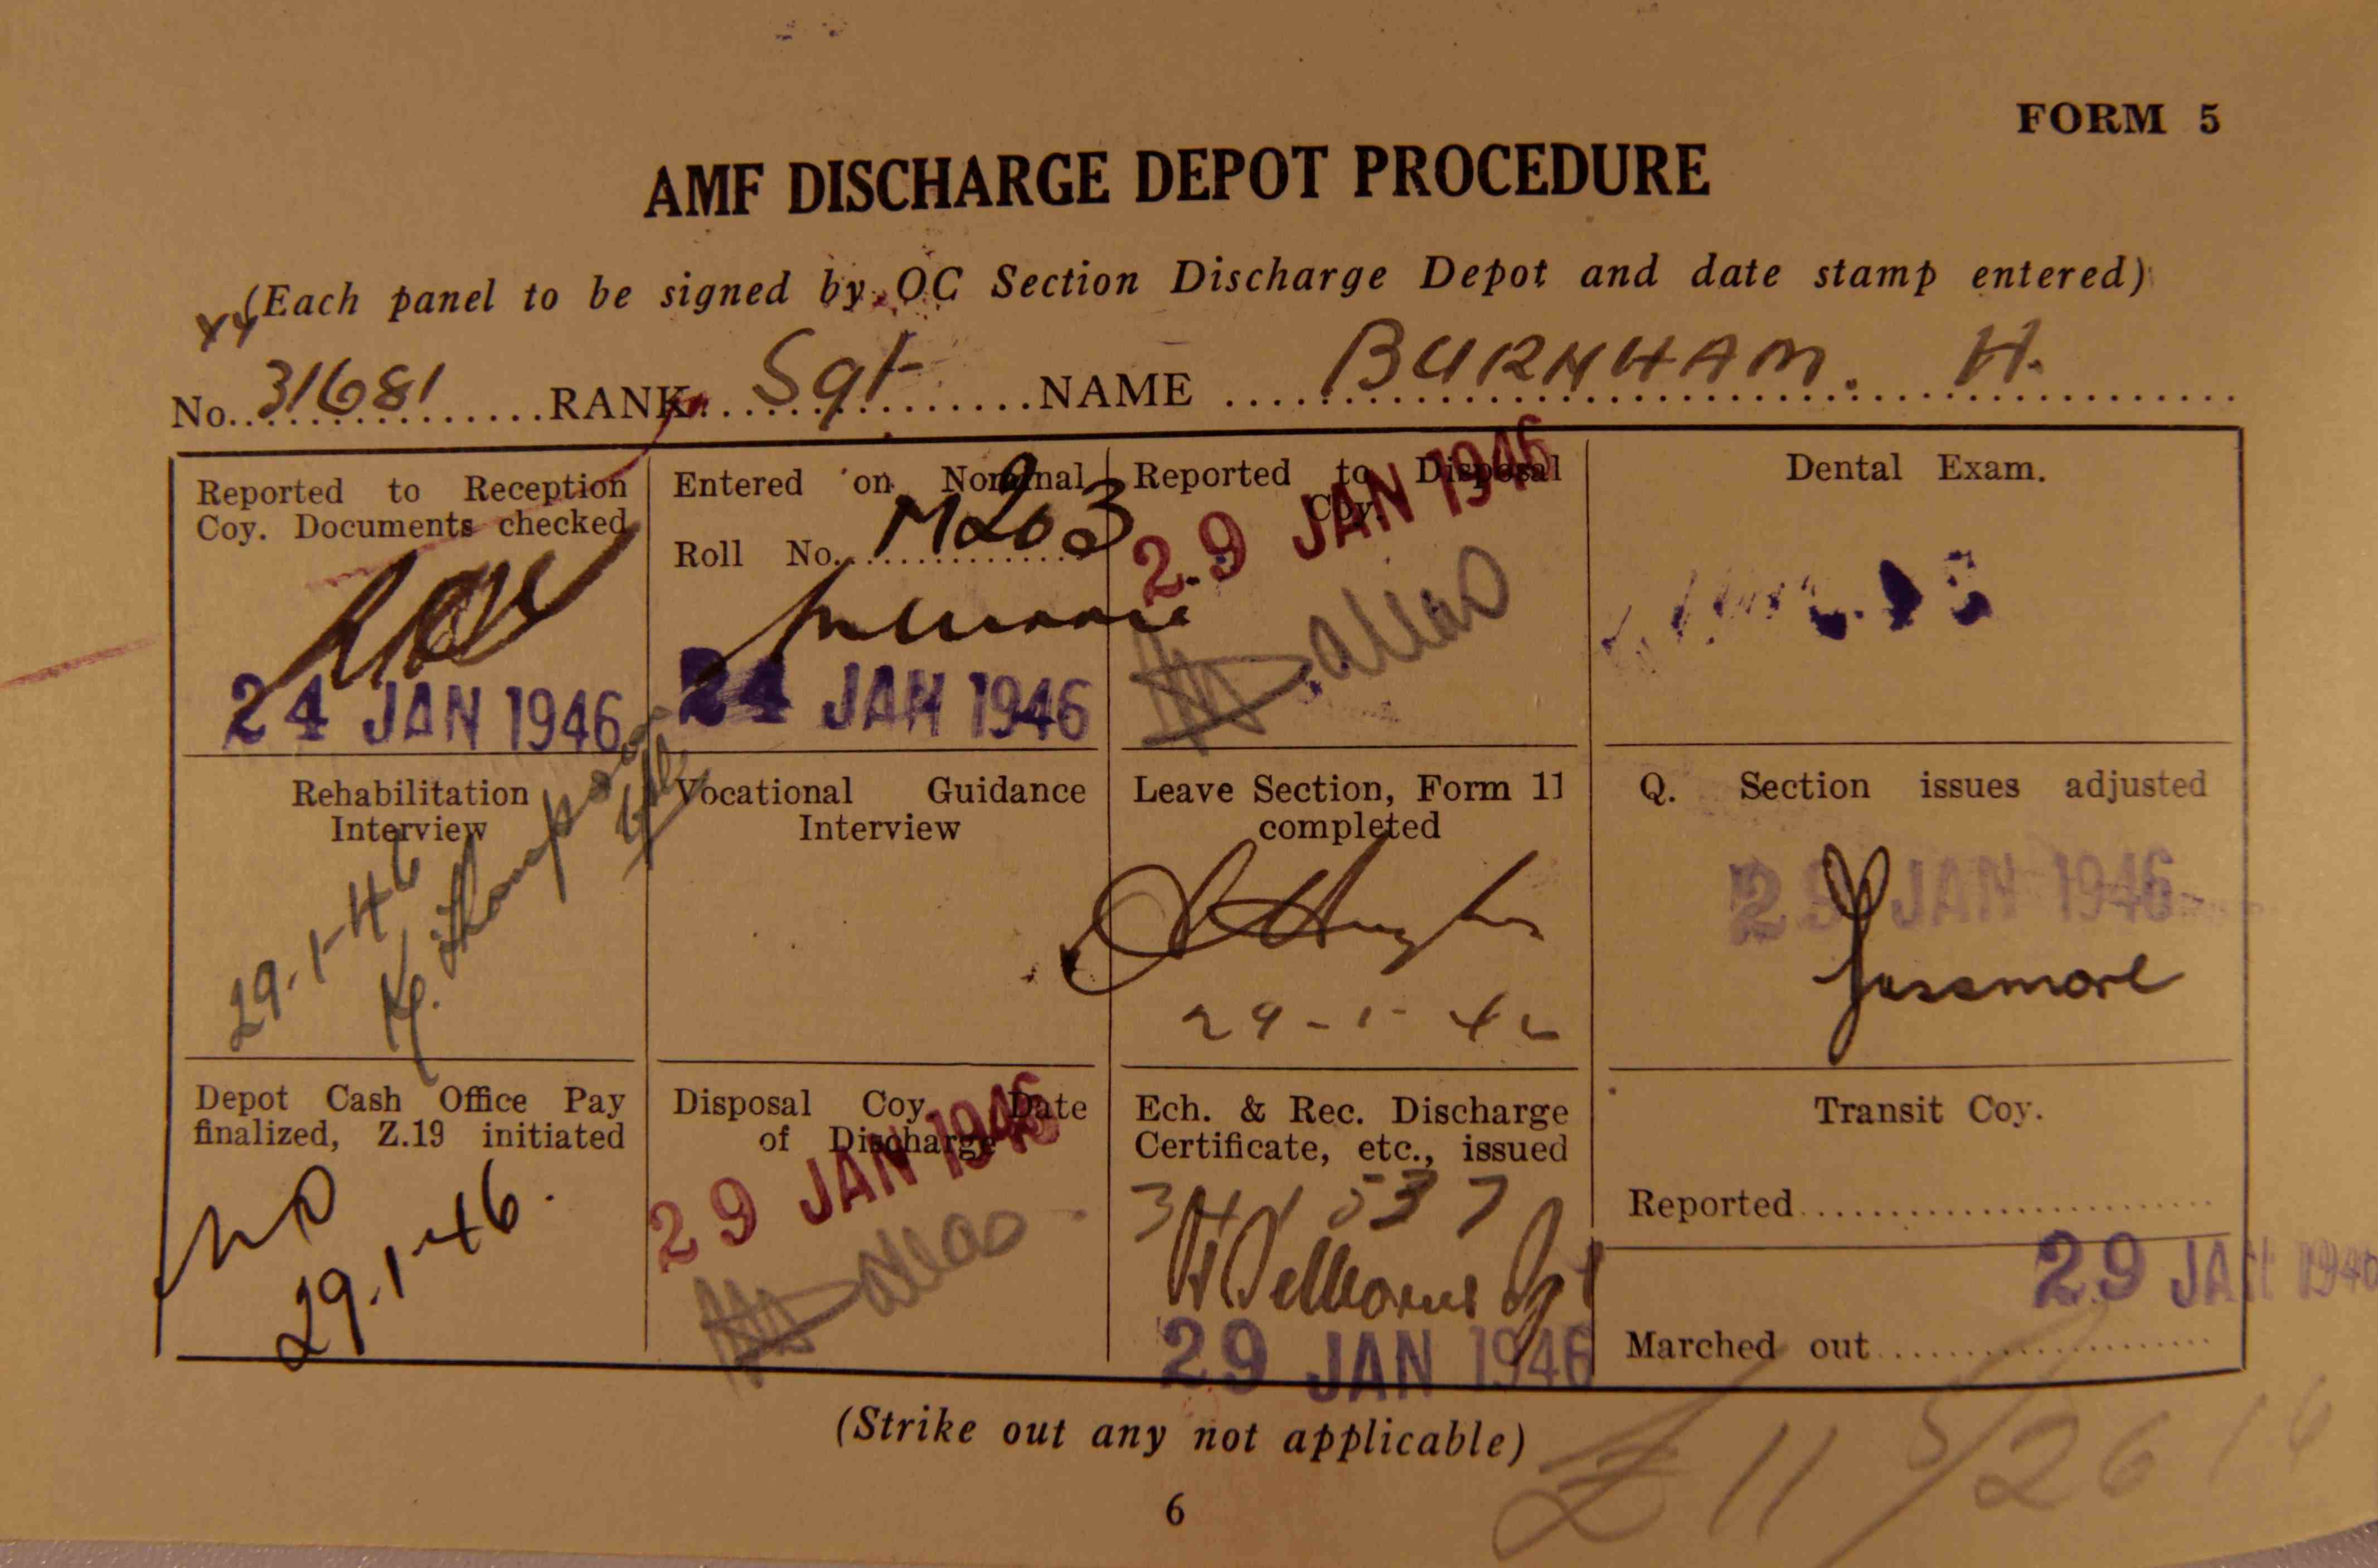 FORM 5
AMF DISCHARGE DEPOT PROCEDURE
(Each panel to be signed by OC Section Discharge Depot and date stamp entered)
No. 31681 RANK Sgt NAME BURNHAM. H.
Reported to Reception
Coy. Documents checked
24 JAN 1946
Entered on Nominal
Roll No. M203
24 JAN 1946
Reported to Disposal
Coy.
29 JAN 1946
Dental Exam.
Rehabilitation
Interview
29-1-46
Vocational Guidance
Interview
Leave Section, Form 11
completed
29-1-46
Q. Section issues adjusted
29 JAN 1946
Depot Cash Office Pay
finalized, Z.19 initiated
29-1-46.
Disposal Coy. Date
of Discharge
29 JAN 1946
Ech. & Rec. Discharge
Certificate, etc., issued
341537
29 JAN 1946
Transit Coy.
Reported
29 JAN 1946
Marched out
(Strike out any not applicable)
6